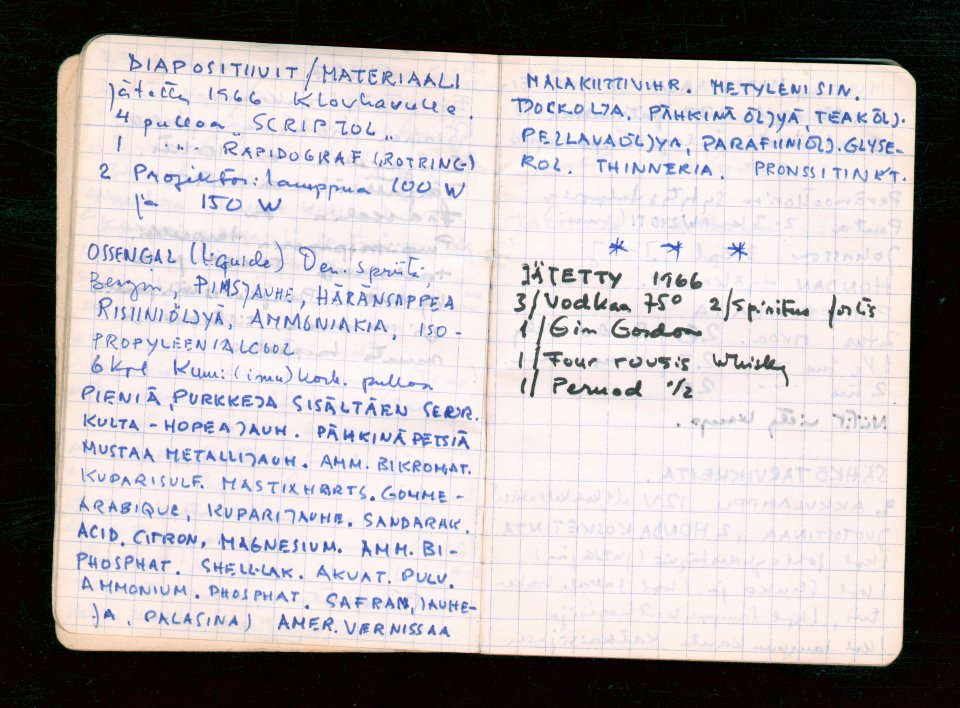 DIAPOSITIIVIT/MATERIAALI
jätetty 1966 Klovharulle.
4 pulloa „ SCRIPTOL „
1 „ RAPIDOGRAF (ROTRING)
2 Projektor: lamppua 100 W
ja 150 W
OSSENGAL (liquide) Den. spriitä,
Bensin, PIMSJAUHE, HÄRÄNSAPPEA
RISIINIÖLJYÄ, AMMONIAKIA, ISO-
PROPYLEENIALCOOL
6 kpl Kum: (imu) kork. pulloa
PIENIÄ, PURKKEJA SISÄLTÄEN SEUR.
KULTA-HOPEAJAUH. PÄHKINÄPETSIÄ
MUSTAA METALLIJAUH. AMM. BIKROMAT.
KUPARISULF. MASTIXHARTS. GOMME-
ARABIQUE, KUPARIJAUHE. SANDARAK.
ACID. CITRON. MAGNESIUM. AMM. BI-
PHOSPHAT. SHELLLAK. AKVAT. PULV.
AMMONIUM. PHOSPHAT. SAFRAM, JAUHE-
JA, PALASINA) AMER. VERNISSAA
MALAKIITTIVIHR. METYLENISIN.
DOCKOLJA. PÄHKINÄÖLJYÄ, TEAKÖLJ.
PELLAVAÖLJYÄ, PARAFIINIÖLJ. GLYSE-
ROL. THINNERIA. PRONSSITINKT.
* * *
JÄTETTY 1966
3/Vodkaa 75° 2/Spiritus fortis
1/Gin Gordon
1/Four rousis Whisky
1/Pernod 1/2